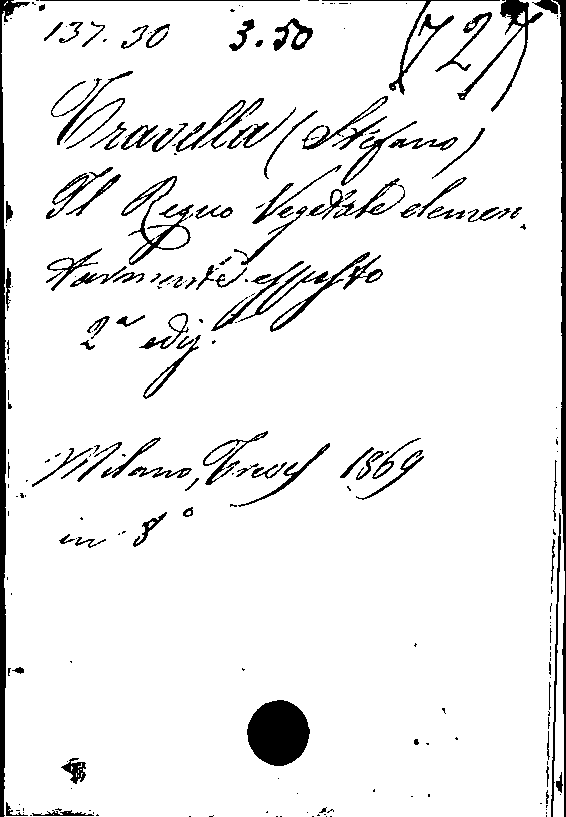 137.30 3.50 (727)
Travella (Stefano)
Il Regno Vegetale elemen-
tarmente esposto
2ª ediz.
Milano, Treves 1869
in 8°